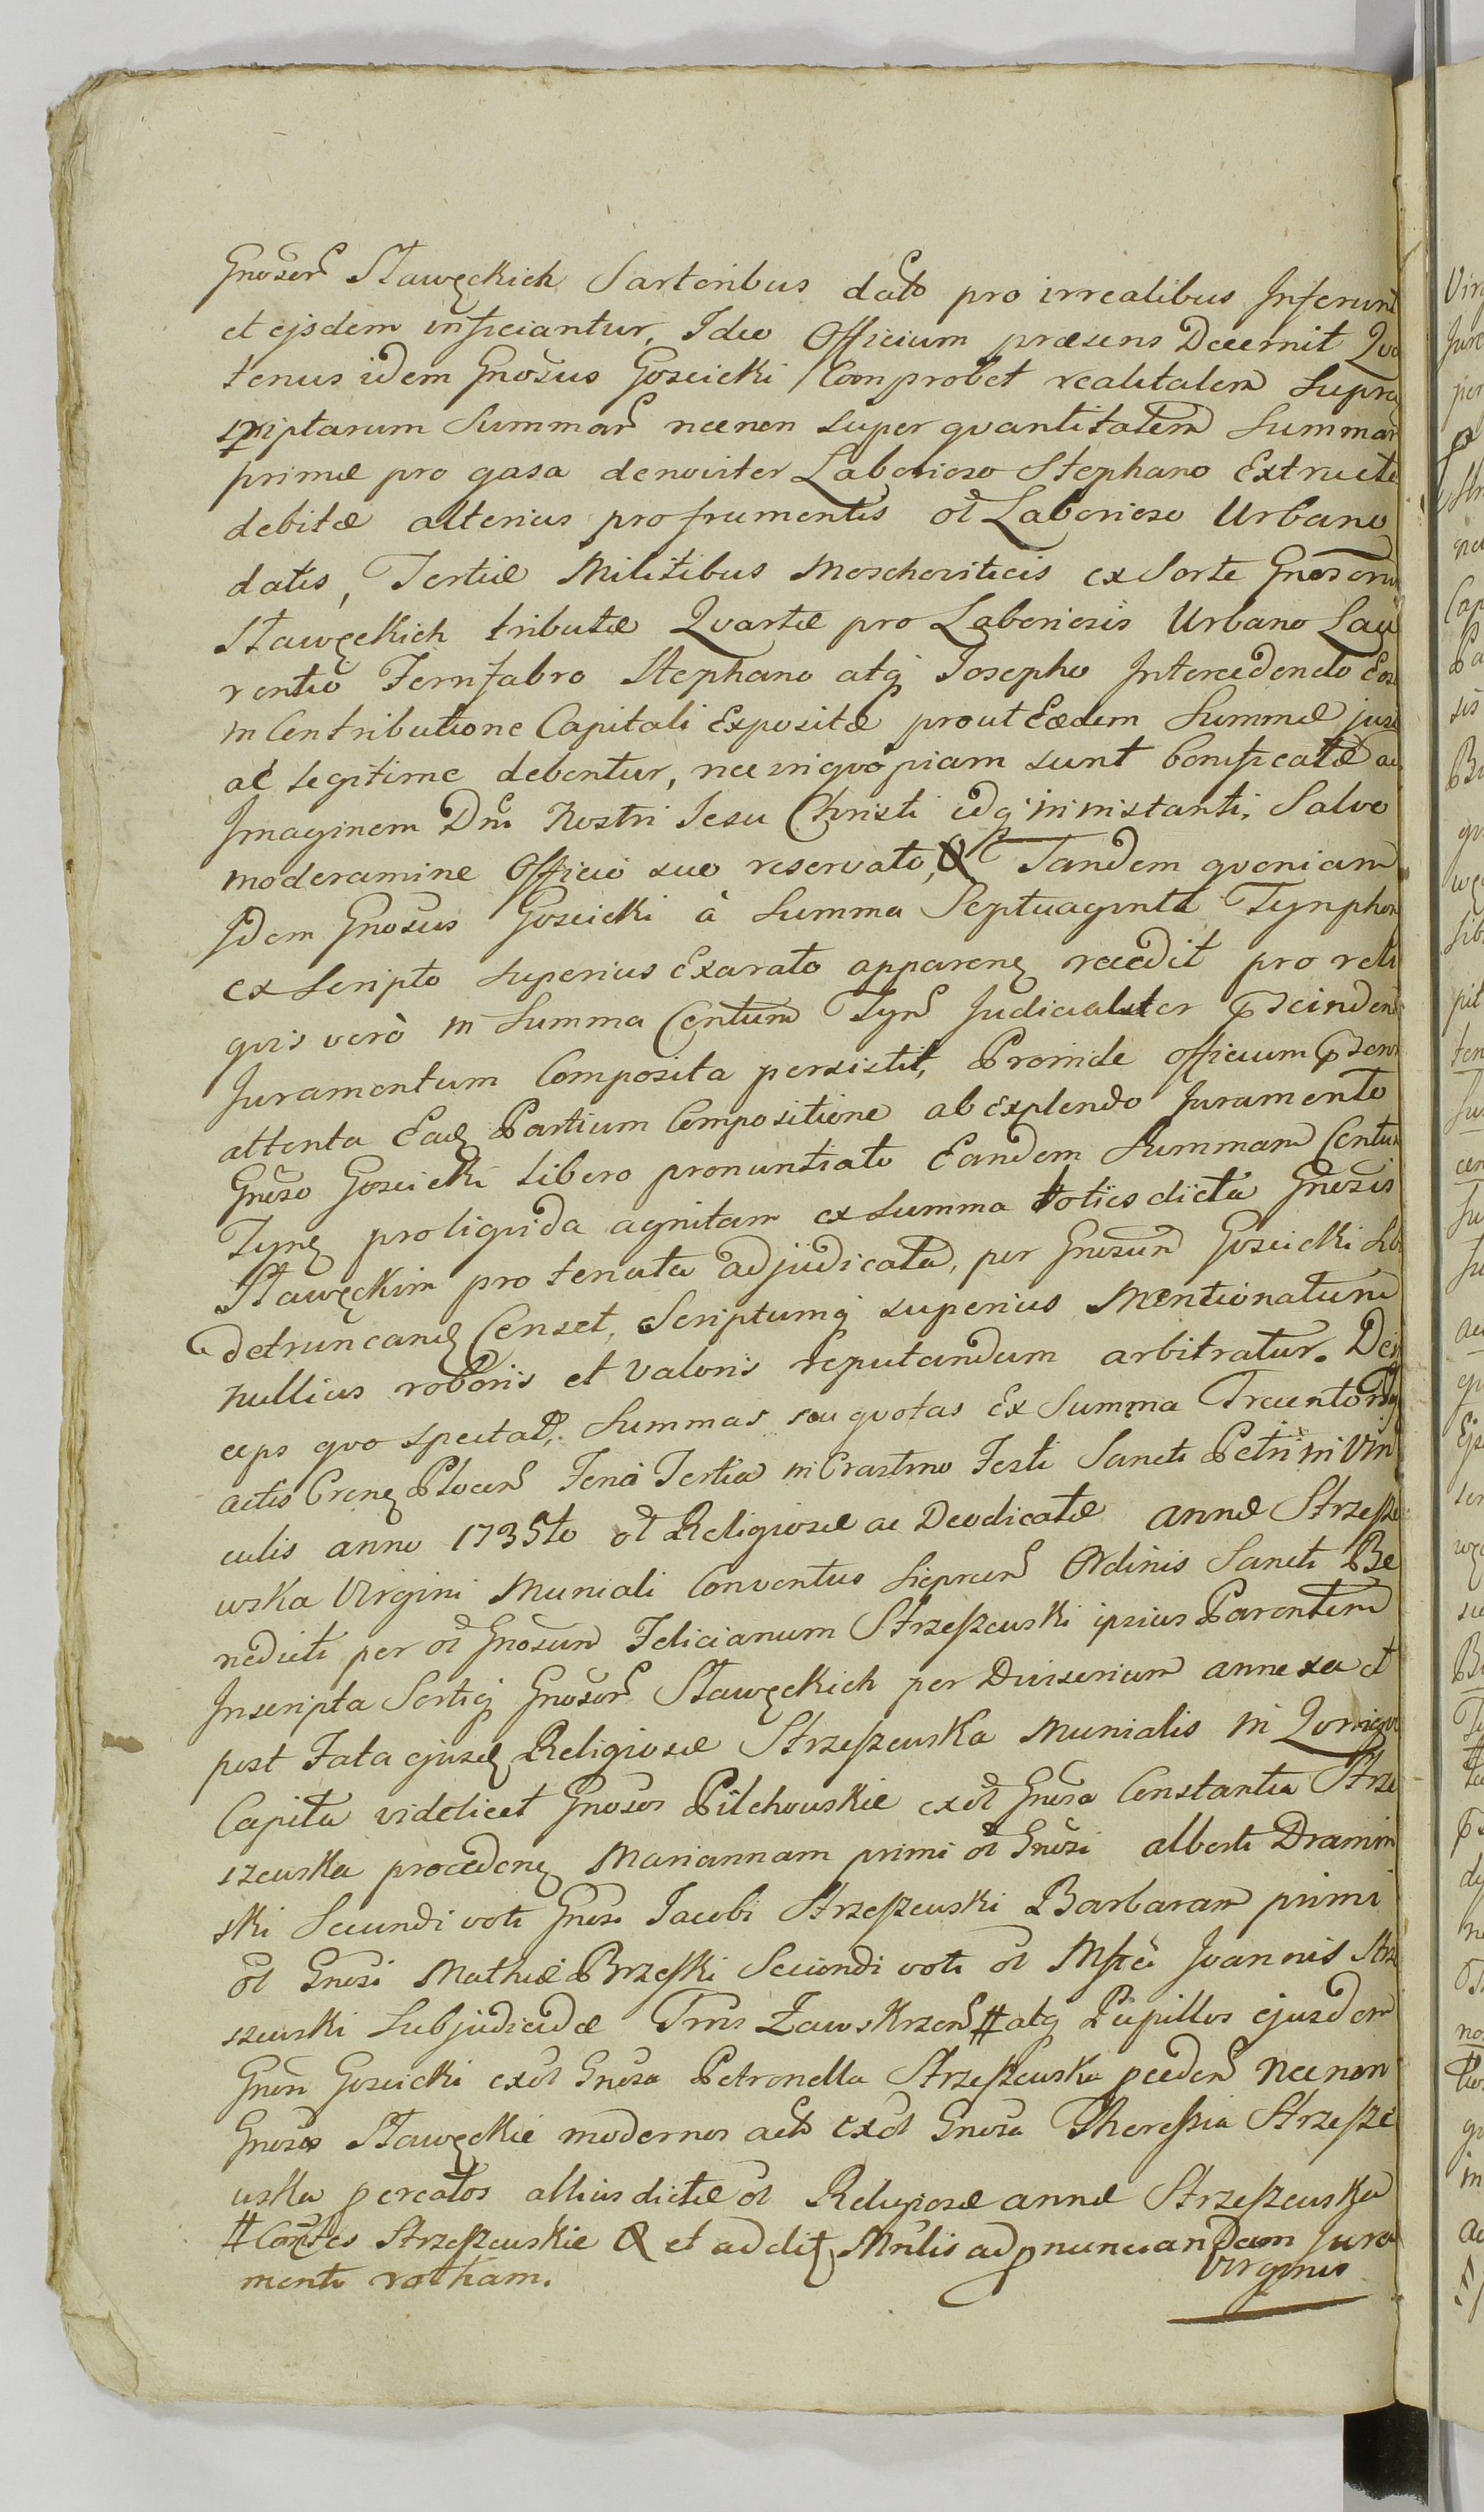 Gnosor Stawęckich Sartoribus dato pro irrealibus Inferunt
et ejsdem inficiantur, Ideo Officium præsens Decernit Qva
tenus idem Gnosus Goscicki Comprobet realitatem supra
scriptarum Summar necnon super qvantitatem Summar
primæ pro gasa denoviter Laborioso Stephano Extructa
debitæ alterius pro frumentis ol Laborioso Urbano
datis, Tertiæ Militibus Moschoviticis ex Sorte Gnosorum
Stawęckich tributæ Qvartæ pro Laboriosis Urbano Lau
rentio Ferrifabro Stephano atq Josepho Intercedendo Eos
in Contributione Capitali Expositæ prout Eædem Summæ juste
ac legitime debentur, nec inqvopiam sunt bonificatæ ad
Imaginem Dni Nostri Jesu Christi idq in instanti, Salvo
moderamine Officio suo reservato, Tandem qvoniam
Idem Gnosus Goscicki à Summa Septuaginta Tynphor
ex Scripto superius Exarato apparen recedit pro reli
qvis verò in Summa Centum Tyn Judicialiter
Juramentum Composita persistit, Proinde officium
attenta Ead Partium Compositione ab explendo Juramento
Gnoso Goscicki libero pronuntiato Eandem Summam Centum
Tyn pro liqvida agnitam ex Summa toties dicta Gnosis
Stawęckim pro tenuta adjudicata, per Gnosum Goscicki sibi
detruncand Censet, Scriptumq superius Mentionatum
nullius roboris et valoris reputandum arbitratur. Dein
ceps qvo spectat, Summas seu qvotas Ex Summa Trecentor
actis Plocen Feria Tertia in Crastino Festi Sancti Petri in Vin
culis anno 1735to ol Religiosæ ac Deodicatæ annæ Strzesze
wska Virgini Moniali Conventus Sieprcen Ordinis Sancti Be
nedicti per ol Gnosum Felicianum Strzeszewski ipsius Parentem
Inscripta Sortiq Gnosor Stawęckich per Divisorium annexa et
post Fata ejusd Religiosæ Strzeszewska Monialis in Qvinqve
Capita videlicet Gnosos Pilchowskie exol Gnosa Constantia Strze
szewska proceden Mariannam primi ol Gnosi alberti Dramin
ski Secundi voti Gnosi Jacobi Strzeszewski Barbaram primi
ol Gnosi Mathiæ Brzeski Secundi voti ol Joannis Strze
szewski Subjudicidæ Trris Zawskrzen # atq Pupillos ejusdem
Gnosi Goscicki exol Gnosa Petronella Strzeszewska pceden necnon
Gnosos Stawęckie modernos acto exol Gnosa Theressia Strzesze
wska pcreatos altius dictæ ol Religiosæ annæ Strzeszewska
# Strzeszewskie et ad ad pnunciandam Jura
menti rotham.
Virginis